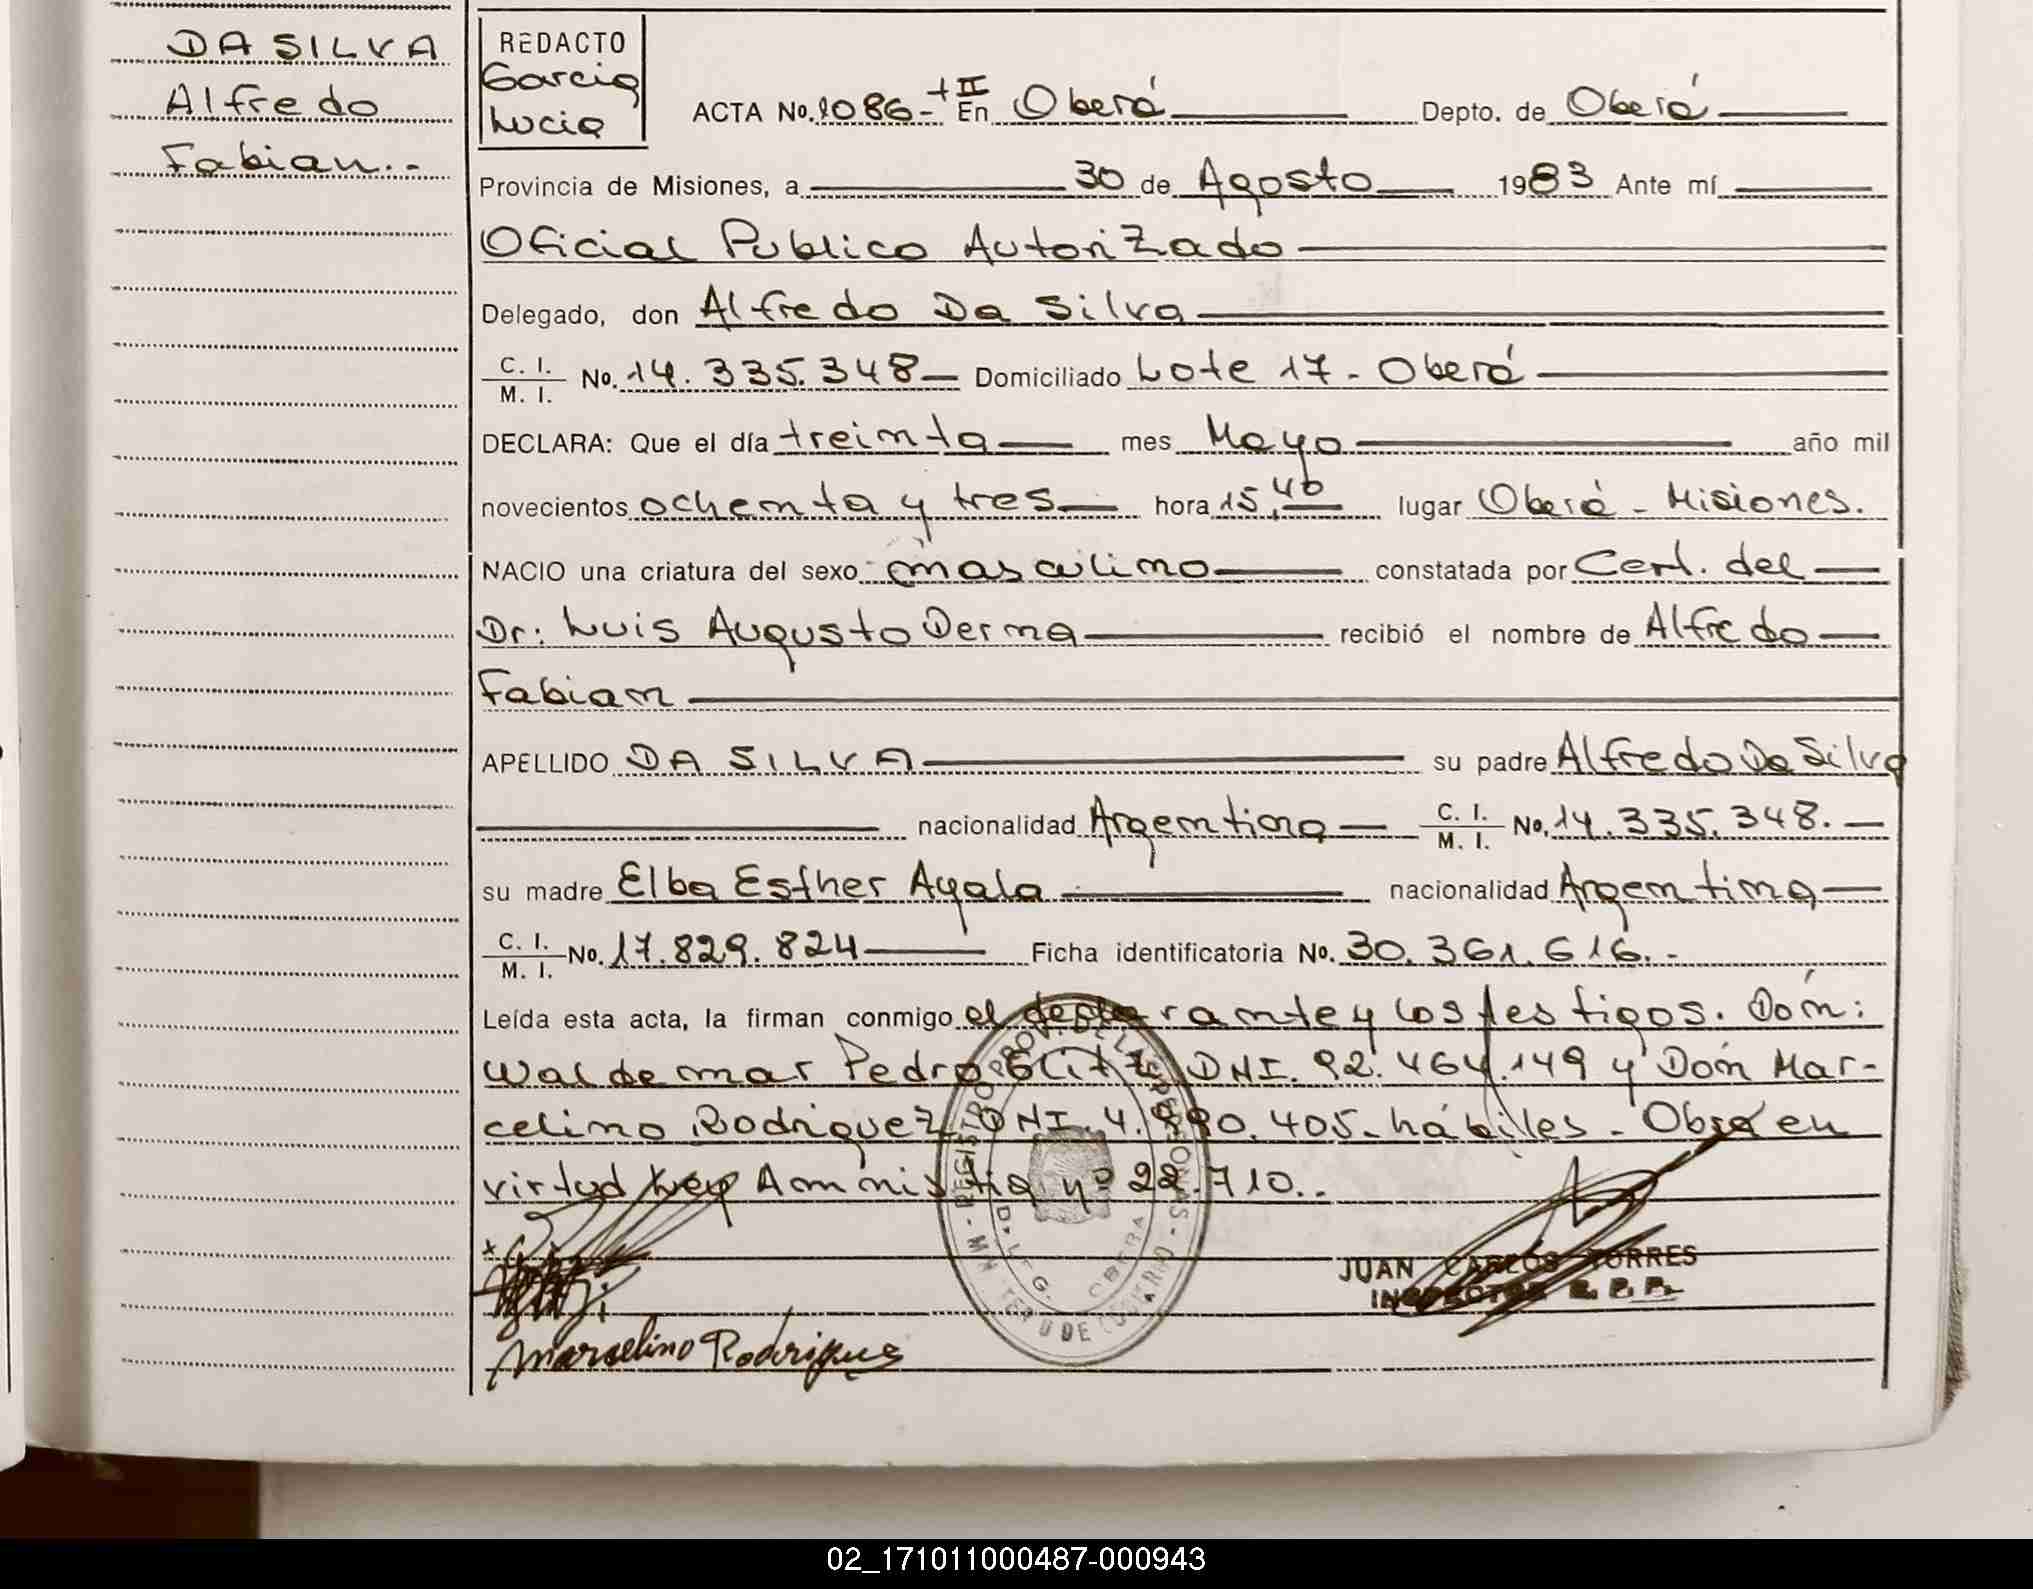 DA SILVA
Alfredo
Fabian.-
REDACTO
Garcia
Lucia
ACTA No. 1086- + II En Oberá Depto. de Oberá
Provincia de Misiones, a 30 de Agosto 1983 Ante mí
Oficial Publico Autorizado
Delegado, don Alfredo Da Silva
C. I. / M. I. No. 14.335.348 Domiciliado Lote 17 - Oberá
DECLARA: Que el día treinta mes Mayo año mil
novecientos ochenta y tres hora 15,40 lugar Oberá - Misiones.
NACIO una criatura del sexo masculino constatada por Cert. del
Dr: Luis Augusto Derna recibió el nombre de Alfredo
Fabian
APELLIDO DA SILVA su padre Alfredo Da Silva
nacionalidad Argentina C. I. / M. I. No. 14.335.348.
su madre Elba Esther Ayala nacionalidad Argentina
C. I. / M. I. No. 17.829.824 Ficha identificatoria No. 30.361.616.-
Leída esta acta, la firman conmigo el declarante y los testigos. Dón:
Waldemar Pedro DNI. 92.464.149 y Dón Mar-
celino Rodriguez DNI. 4. 405- hábiles - Obrá en
virtud Ley Amnistia nº 22.710..
REGISTRO PROV. DE LAS PERSONAS
DELEG. OBERA
JUAN CARLOS TORRES
INSPECTOR R. P. P.
Marcelino Rodrigues
02_171011000487-000943